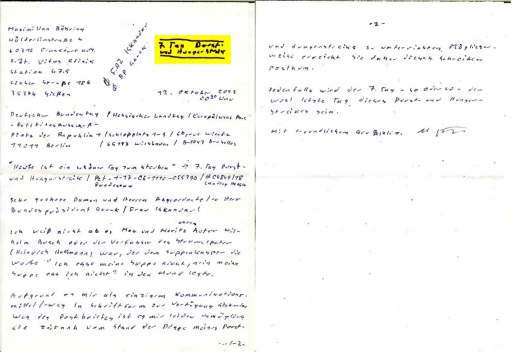 Maximilian Bähring
Hölderlinstraße 4
60316 Frankfurt/M.
z.Zt. Vitos Klinik
Station
Licher Straße 106
35394 Gießen
7. Tag Durst-
und Hungerstreik
13. Oktober
Uhr
Deutscher Bundestag / Hessischer Landtag / Europäisches Par.
- Petitionsausschuß -
Platz der Republik 1 / Schlossplatz 1-3 /
11011 Berlin / 65183 Wiesbaden / Brüssel
"Heute ist ein schöner Tag zum sterben" 7. Tag Durst-
und Hungerstreik /
Bundestag Landtag Hessen
Sehr geehrte Damen und Herren Abgeordnete / Herr
Bundespräsident Gauck / Frau Iskandar!
Ich weiß nicht ob es Max und Moritz Autor Wil-
helm Busch oder der Verfasser des Struwwelpeter
(Heinrich Hoffmann) war, der dem Suppenkasper die
Worte "Ich esse meine Suppe nicht, nein meine
Suppe ess ich nicht" in den Mund legte.
Aufgrund des mir als einzigem Kommunikations-
mittel/-weg in Schriftform zur Verfügung stehenden
Weg des Postbriefes ist es mir leider unmöglich
sie zeitnah vom Stand der Dinge meines Durst-
-2-
- 2 -
und Hungerstreiks zu unterrichten. Möglicher-
weise erreicht Sie daher dieses Schreiben
posthum.
Jedenfalls wird der 7. Tag - so oder so - der
wohl letzte Tag dieses Durst- und Hunger-
streikes sein.
Mit freundlichem